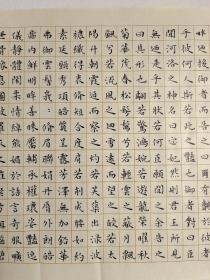 畔迺援御者而告之曰爾有覿於彼者
乎彼何人斯若此之豔也御者對曰臣
聞河洛之神名曰宓妃然則君王所見
無迺是乎其狀若何臣願聞之余告之
曰其形也翩若驚鴻婉若遊龍榮曜秋
菊華茂春松髣髴兮若輕雲之蔽月飄
飖兮若流風之迴雪遠而望之皎若太
陽升朝霞迫而察之灼若芙蕖出淥波
穠纖得衷脩短合度肩若削成腰如約
素延頸秀項皓質呈露芳澤無加鉛華
弗御雲髻峩峩脩眉聯娟丹脣外朗皓
齒內鮮明眸善睞靨輔承權瓌姿豔逸
儀靜體閑柔情綽態媚於語言奇服曠